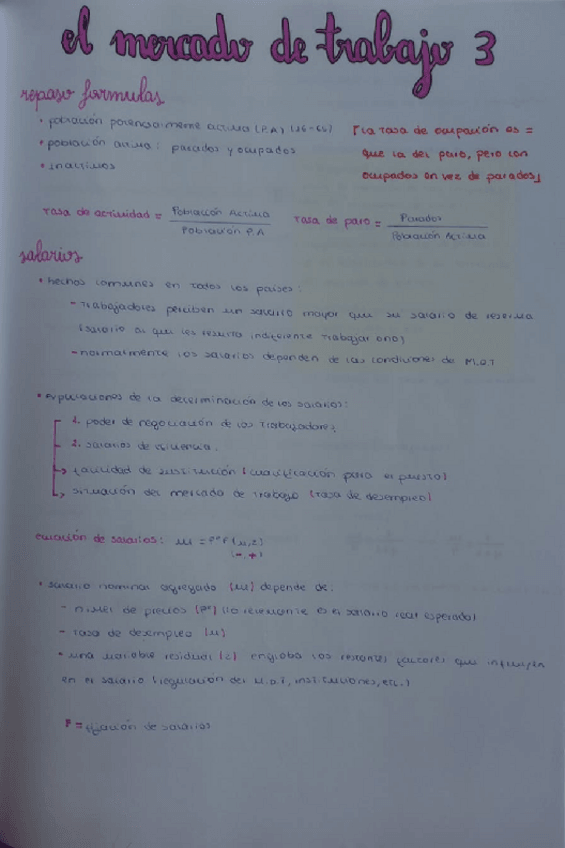 el mercado de trabajo 3
repaso formulas
• población potencialmente activa (P.A) (16-65)
• población activa: parados y ocupados
• Inactivos
「la tasa de ocupación es =
que la del paro, pero con
ocupados en vez de parados」
Tasa de actividad = Población Activa / Población P.A
Tasa de paro = Parados / Población Activa
salarios
• Hechos comunes en todos los países:
- Trabajadores perciben un salario mayor que su salario de reserva
(salario al que les resulta indiferente trabajar o no)
- normalmente los salarios dependen de las condiciones de M.O.T
• Explicaciones de la determinación de los salarios:
1. poder de negociación de los trabajadores
2. salarios de eficiencia.
↳ facilidad de sustitución (cualificación para el puesto)
↳ situación del mercado de trabajo (tasa de desempleo)
ecuación de salarios: W = PᵉF(u,z)
(-,+)
• salario nominal agregado (W) depende de:
- nivel de precios (Pᵉ) (lo relevante es el salario real esperado)
- tasa de desempleo (u)
• una variable residual (z) engloba los restantes factores que influyen
en el salario (regulación del M.O.T, instituciones, etc.)
F = fijación de salarios